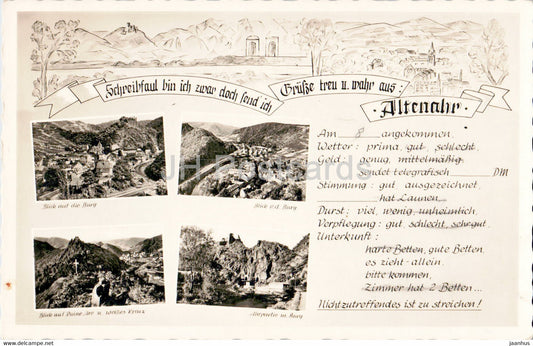 Schreibfaul bin ich zwar doch send' ich
Grüße treu u. wahr aus:
Altenahr
Am 8 angekommen
Wetter: prima, gut, schlecht
Geld: genug, mittelmäßig
sendet telegrafisch DM
Stimmung: gut, ausgezeichnet,
hat Launen
Durst: viel, wenig, unheimlich
Verpflegung: gut, schlecht, sehr gut
Unterkunft:
harte Betten, gute Betten
es zieht - allein,
bitte kommen,
Zimmer hat 2 Betten...
Nichtzutreffendes ist zu streichen!
Blick auf die Burg
Blick v.d. Burg
Blick auf Ruine Are u. weißes Kreuz
Ahrpartie m. Burg
JH Postcards
www.jhpostcards.com